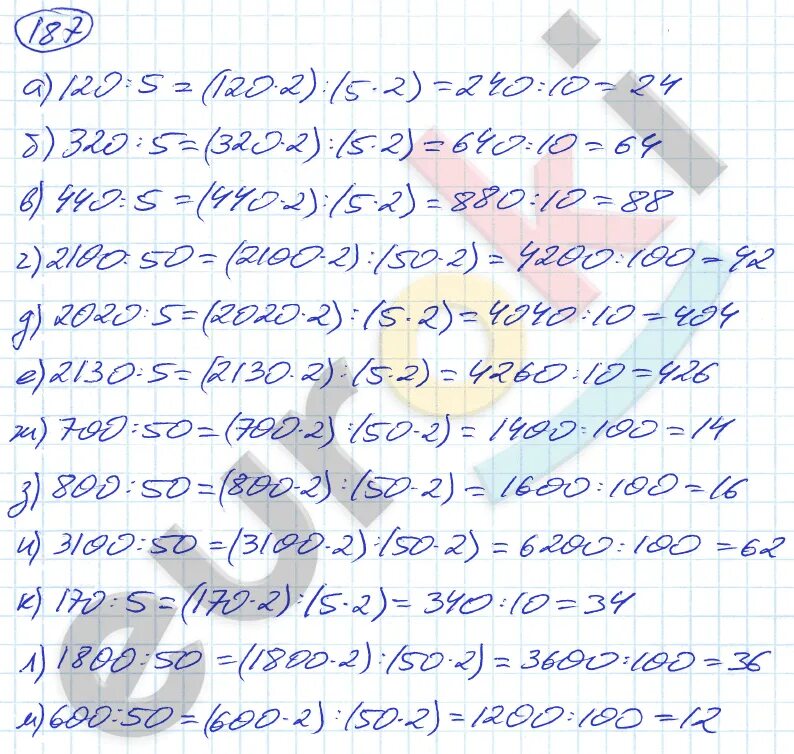 187
а) 120:5 = (120·2):(5·2) = 240:10 = 24
б) 320:5 = (320·2):(5·2) = 640:10 = 64
в) 440:5 = (440·2):(5·2) = 880:10 = 88
г) 2100:50 = (2100·2):(50·2) = 4200:100 = 42
д) 2020:5 = (2020·2):(5·2) = 4040:10 = 404
е) 2130:5 = (2130·2):(5·2) = 4260:10 = 426
ж) 700:50 = (700·2):(50·2) = 1400:100 = 14
з) 800:50 = (800·2):(50·2) = 1600:100 = 16
и) 3100:50 = (3100·2):(50·2) = 6200:100 = 62
к) 170:5 = (170·2):(5·2) = 340:10 = 34
л) 1800:50 = (1800·2):(50·2) = 3600:100 = 36
м) 600:50 = (600·2):(50·2) = 1200:100 = 12
euroki